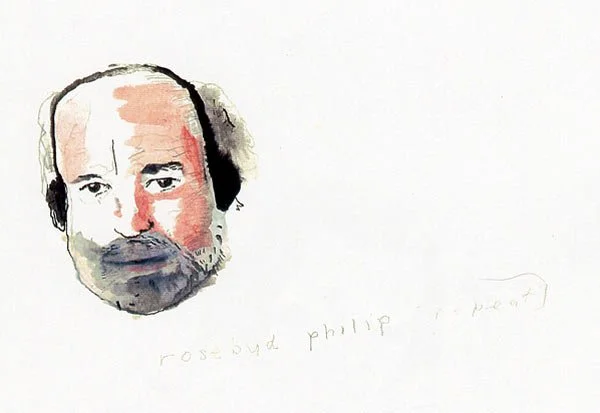 rosebud philip repeat